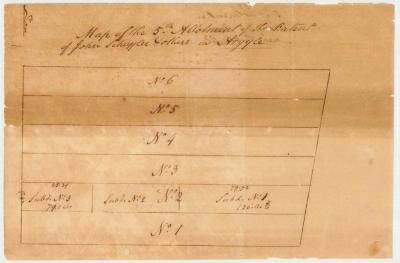 Map of the 5th Allotment of the Patent
of John Schuyler & others in Argyle
No. 6
No. 5
No. 4
No. 3
Subd. No. 3
Subd. No. 2
No. 2
Subd. No. 1
No. 1